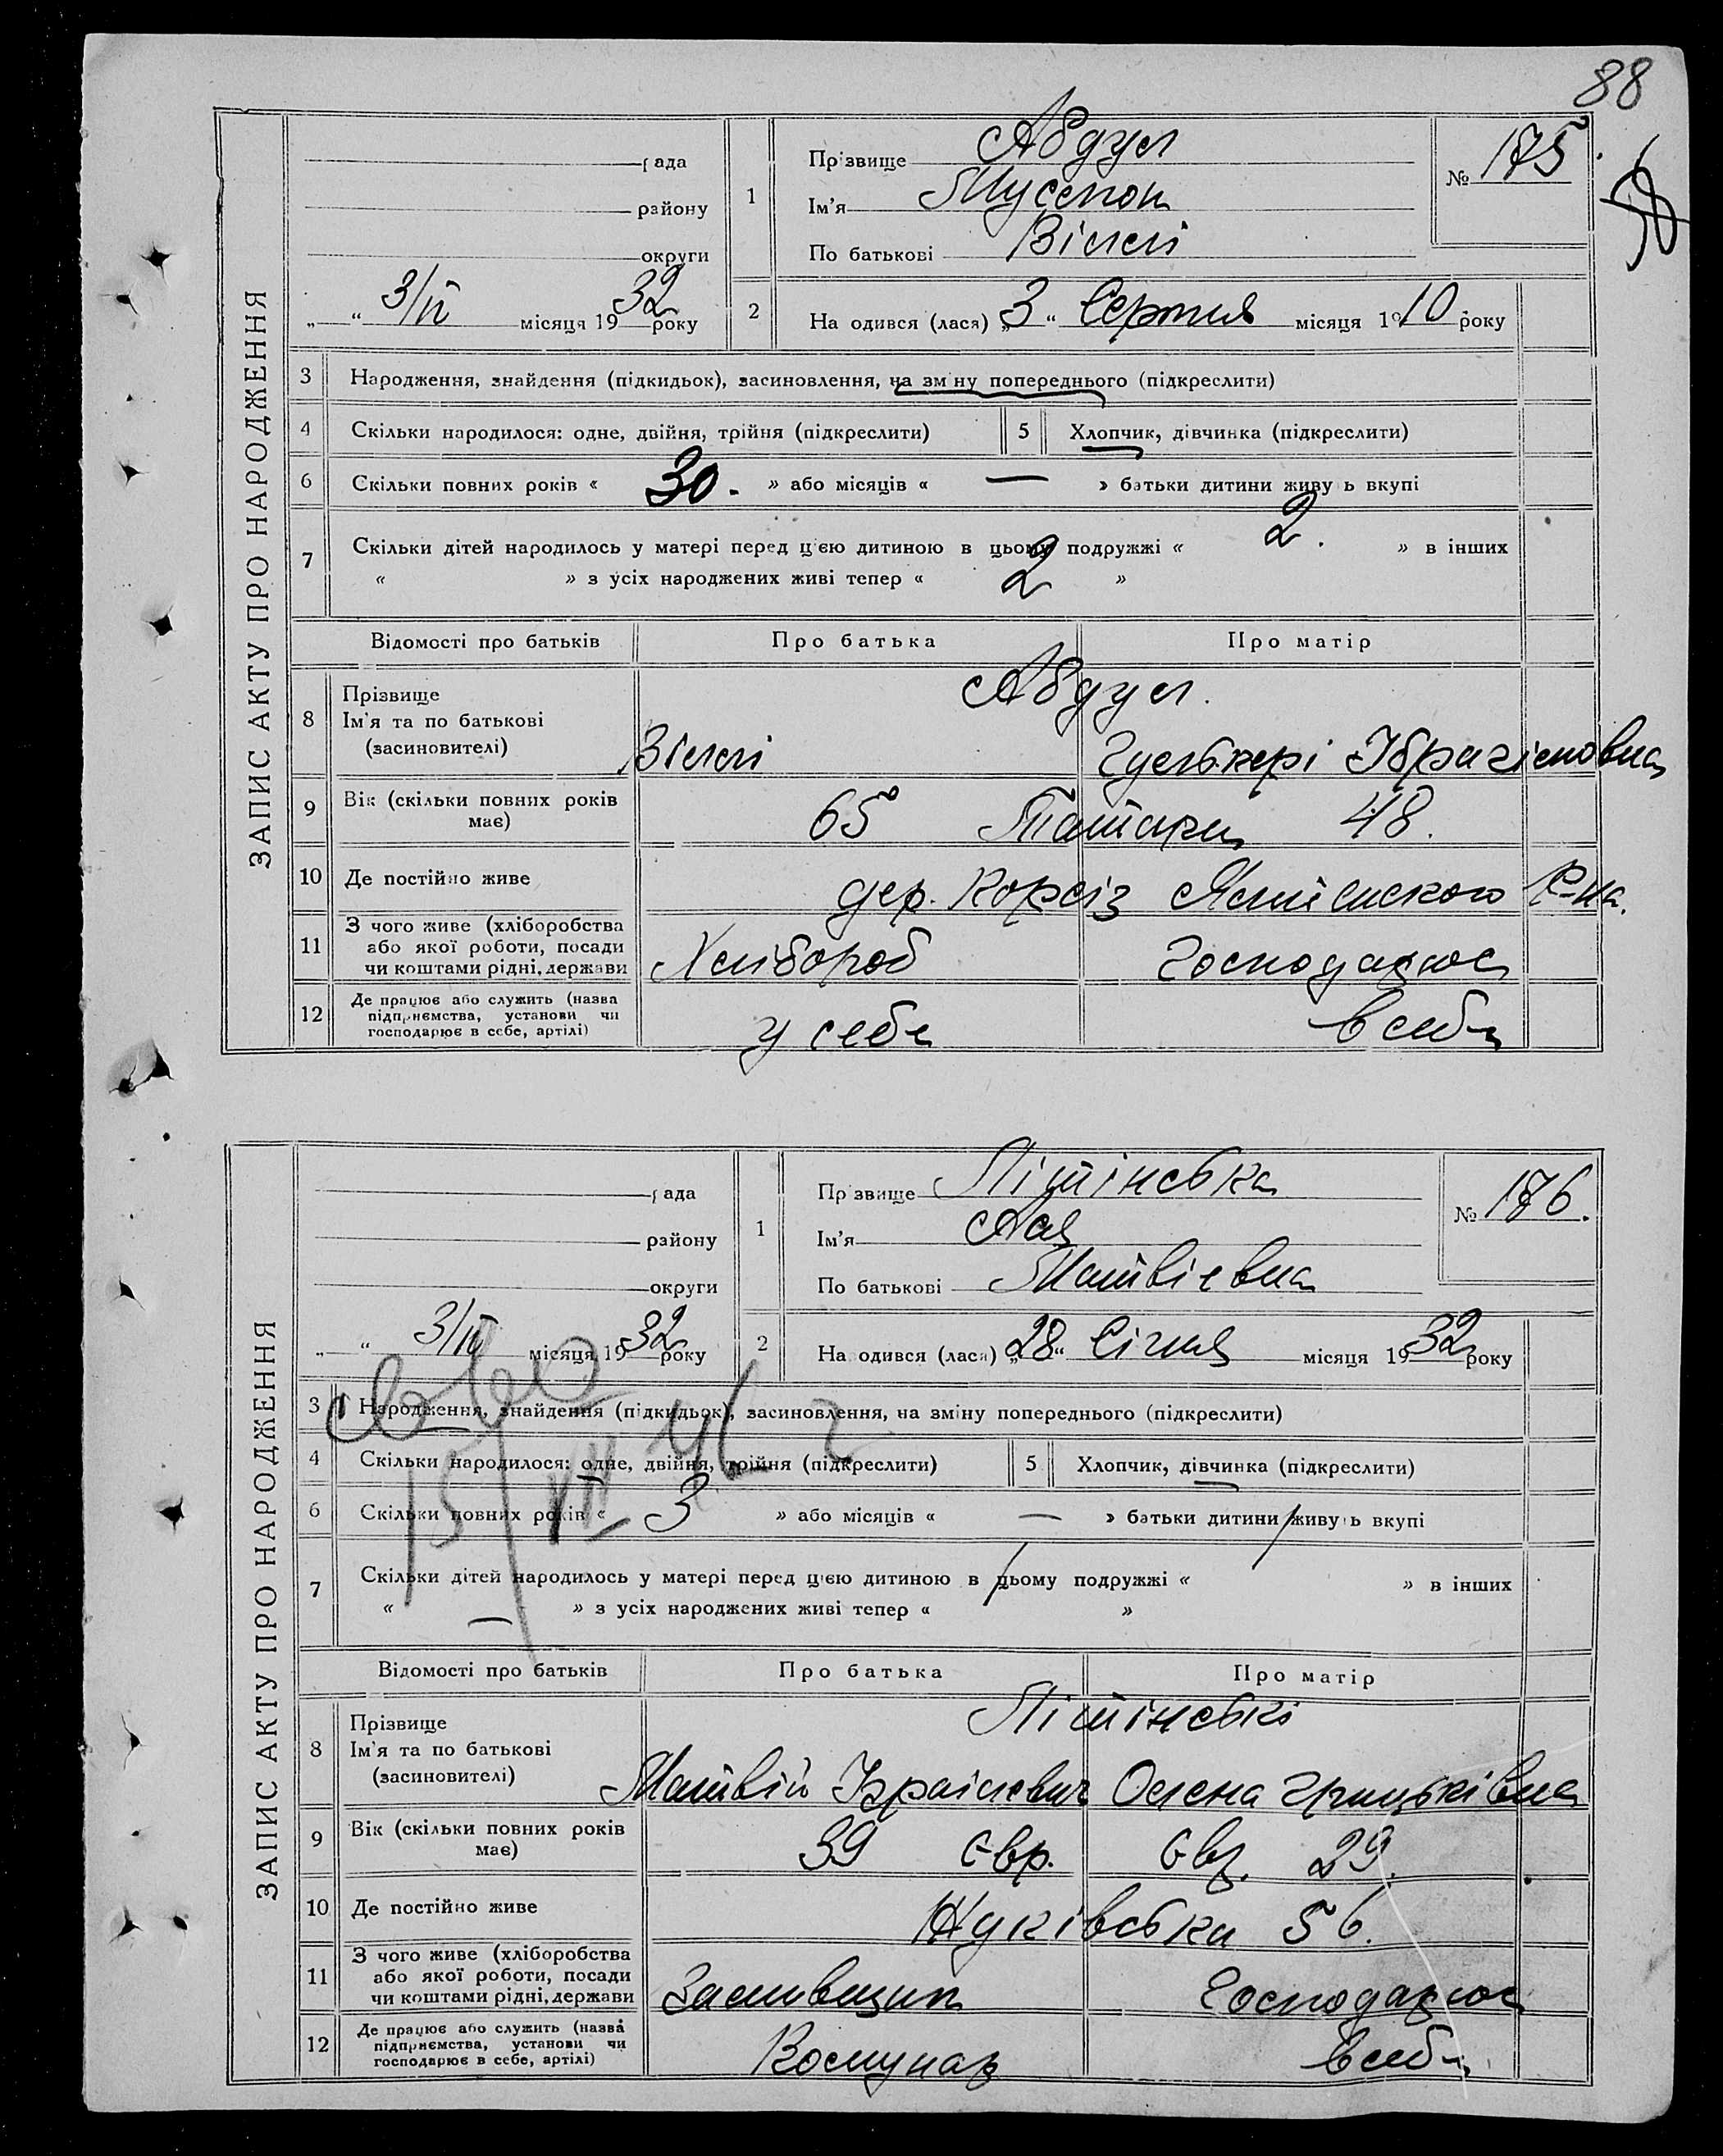 88
ЗАПИС АКТУ ПРО НАРОДЖЕННЯ
рада
району
округи
3/IV місяця 1932 року
1
Прізвище Абдул
Ім'я
По батькові Вілял
№ 175
2
На одився (лася) „3“ Серпня місяця 1910 року
3 Народження, знайдення (підкидьок), засиновлення, на зм ну попереднього (підкреслити)
4 Скільки народилося: одне, двійня, трійня (підкреслити)
5 Хлопчик, дівчинка (підкреслити)
6 Скільки повних років « 30. » або місяців « — » батьки дитини живу ь вкупі
7 Скільки дітей народилось у матері перед цією дитиною в цьому подружжі « 2. » в інших
« » з усіх народжених живі тепер « 2 »
Відомості про батьків Про батька Про матір
8 Прізвище
Ім'я та по батькові
(засиновителі)
Абдул.
Ібрагімовна
9 Вік (скільки повних років має) 65 Татари 48.
10 Де постійно живе дер. р-на.
11 З чого живе (хліборобства або якої роботи, посади чи коштами рідні, держави Хлібороб Господарює
12 Де працює або служить (назва підприємства, установи чи господарює в себе, артілі) у себе в себе
ЗАПИС АКТУ ПРО НАРОДЖЕННЯ
рада
району
округи
3/IV місяця 1932 року
1
Пр звище Літінська
Ім'я Ася
По батькові Матвієвна
№ 176.
2
На одився (лася) „28“ Січня місяця 1932 року
3 Народження, знайдення (підкидьок), засиновлення, на зміну попереднього (підкреслити)
4 Скільки народилося: одне, двійня, трійня (підкреслити)
5 Хлопчик, дівчинка (підкреслити)
6 Скільки повних років « 3 » або місяців « — » батьки дитини живу ь вкупі
7 Скільки дітей народилось у матері перед цією дитиною в цьому подружжі « » в інших
« — » з усіх народжених живі тепер « »
Відомості про батьків Про батька Про матір
8 Прізвище
Ім'я та по батькові
(засиновителі)
Літінські
Матвій Ізраілевич Олена Грицьківна
9 Вік (скільки повних років має) 39 Євр. Євр. 29.
10 Де постійно живе Жуківська 56.
11 З чого живе (хліборобства або якої роботи, посади чи коштами рідні, держави Заливщик Господарює
12 Де працює або служить (назва підприємства, установи чи господарює в себе, артілі) Комунар в себе